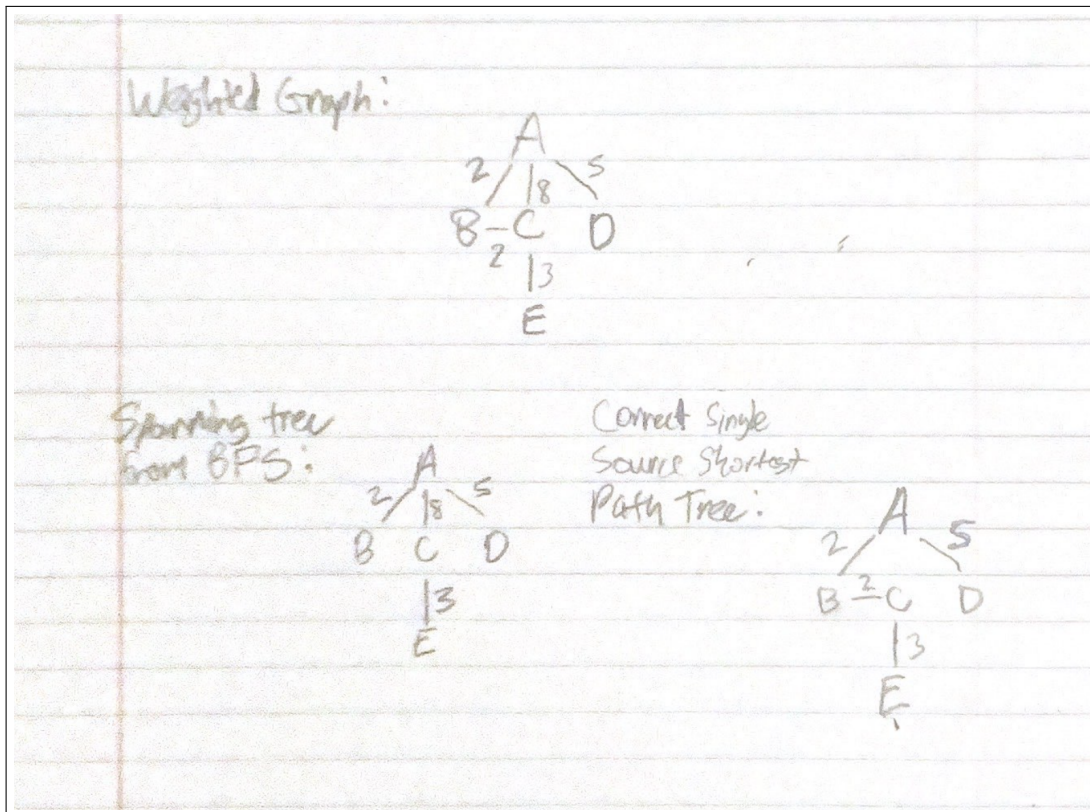 Weighted Graph:
A
2 8 5
B C D
2
3
E
Spanning tree
from BFS:
A
2 8 5
B C D
3
E
Correct Single
Source Shortest
Path Tree:
A
2 5
B 2 C D
3
E